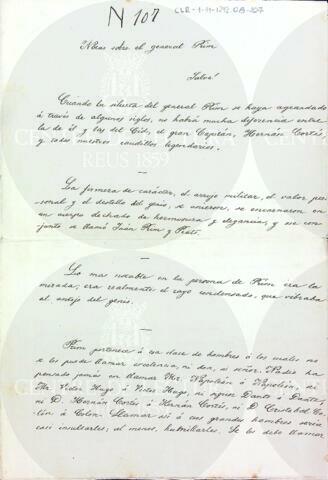 Nº 107
CLR-1-11-1292.08-107
Notas sobre el general Prim
Salou!
Cuando la silueta del general Prim se haya agrandado
á través de algunos siglos, no habrá mucha diferencia entre
la de él y las del Cid, el gran Capitán, Hernán Cortés,
y todos nuestros caudillos legendarios.
La firmeza de carácter, el arrojo militar, el valor per-
sonal y el destello del genio, se unieron, se encarnaron en
un cuerpo dechado de hermosura y elegancia, y ese con-
junto se llamó Juan Prim y Prats.
Lo mas notable en la persona de Prim era la
mirada; era realmente el rayo condensado, que vibraba
al antojo del genio.
Prim pertenece á esa clase de hombres á los cuales no
se les puede llamar excelencia, ni don, ni señor. Nadie ha
pensado jamás en llamar Mr. Napoleón á Napoleón, ni
Mr. Victor Hugo á Victor Hugo, ni signor Dante á Dante,
ni D. Hernán Cortés á Hernán Cortés, ni D. Cristobal Co-
lón á Colón. Llamar así á esos grandes hombres sería
casi insultarles; al menos, humillarles. Se les debe llamar
CENTRE
REUS 1859